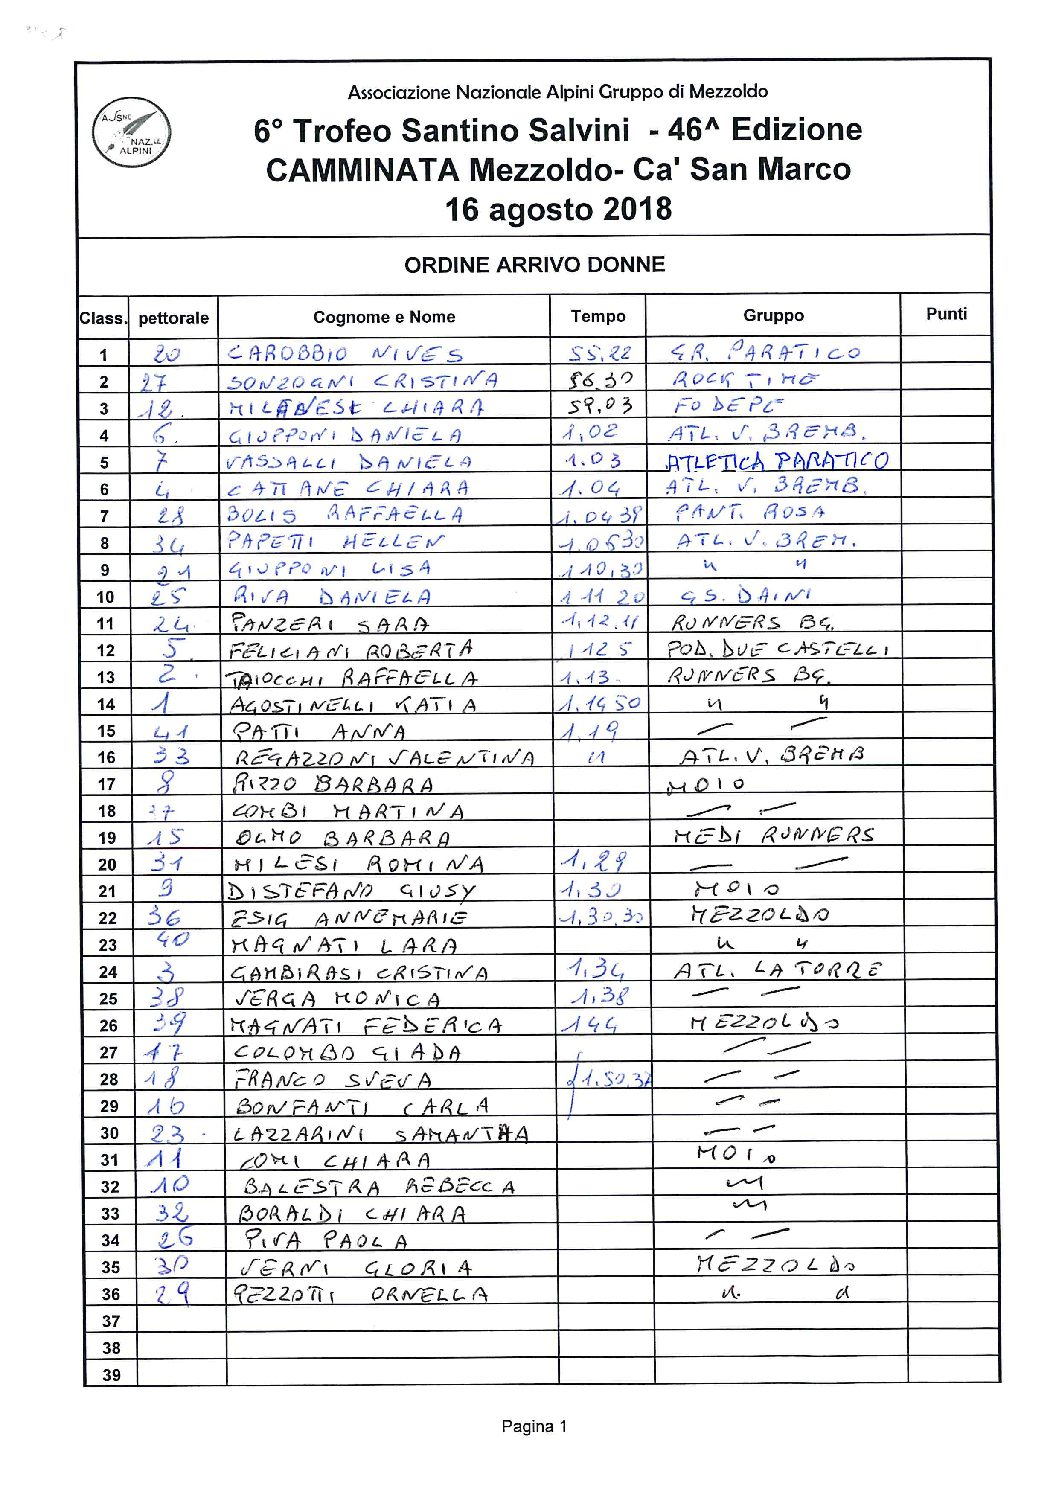 Associazione Nazionale Alpini Gruppo di Mezzoldo
6° Trofeo Santino Salvini - 46^ Edizione
CAMMINATA Mezzoldo- Ca' San Marco
16 agosto 2018
NAZ.
ALPINI
ORDINE ARRIVO DONNE
Class. pettorale Cognome e Nome Tempo Gruppo Punti
1 20 CAROBBIO NIVES 55,22 GR. PARATICO
2 27 SONZOGNI CRISTINA 56.30 ROCK TIME
3 12. MILANESE CHIARA 59,03 FO DEPE
4 6. GIUPPONI DANIELA 1,02 ATL. V. BREMB.
5 7 VASSALLI DANIELA 1.03 ATLETICA PARATICO
6 4 CATTANE CHIARA 1.04 ATL. V. BREMB.
7 28 BOLIS RAFFAELLA 1.0438 PANT. ROSA
8 34 PAPETTI HELLEN 1.0530 ATL. V. BREM.
9 21 GIUPPONI LISA 110,30 " "
10 25 RIVA DANIELA 1 11 20 G S. DAINI
11 24 PANZERI SARA 1,12,11 RUNNERS BG.
12 5 FELICIANI ROBERTA 1 12 5 POD. DUE CASTELLI
13 2 TAIOCCHI RAFFAELLA 1.13 RUNNERS BG.
14 1 AGOSTINELLI KATIA 1.1450 " "
15 41 PATTI ANNA 1,19 — —
16 33 REGAZZONI VALENTINA " ATL. V. BREMB
17 8 RIZZO BARBARA MOIO
18 COMBI MARTINA — —
19 15 OLMO BARBARA MEDI RUNNERS
20 31 MILESI ROMINA 1,29 — —
21 9 DISTEFANO GIUSY 1,30 MOIO
22 36 ESIG ANNEMARIE 1,30,30 MEZZOLDO
23 40 MAGNATI LARA " "
24 3 GAMBIRASI CRISTINA 1,34 ATL. LA TORRE
25 38 VERGA MONICA 1,38 — —
26 39 MAGNATI FEDERICA 144 MEZZOLDO
27 17 COLOMBO GIADA — —
28 18 FRANCO SVEVA 1.50,37 — —
29 16 BONFANTI CARLA — —
30 23 LAZZARINI SAMANTHA — —
31 11 COMI CHIARA MOIO
32 10 BALESTRA REBECCA "
33 32 BORALDI CHIARA "
34 26 PIVA PAOLA — —
35 30 VERNI GLORIA MEZZOLDO
36 29 PEZZOTTI ORNELLA " "
37
38
39
Pagina 1